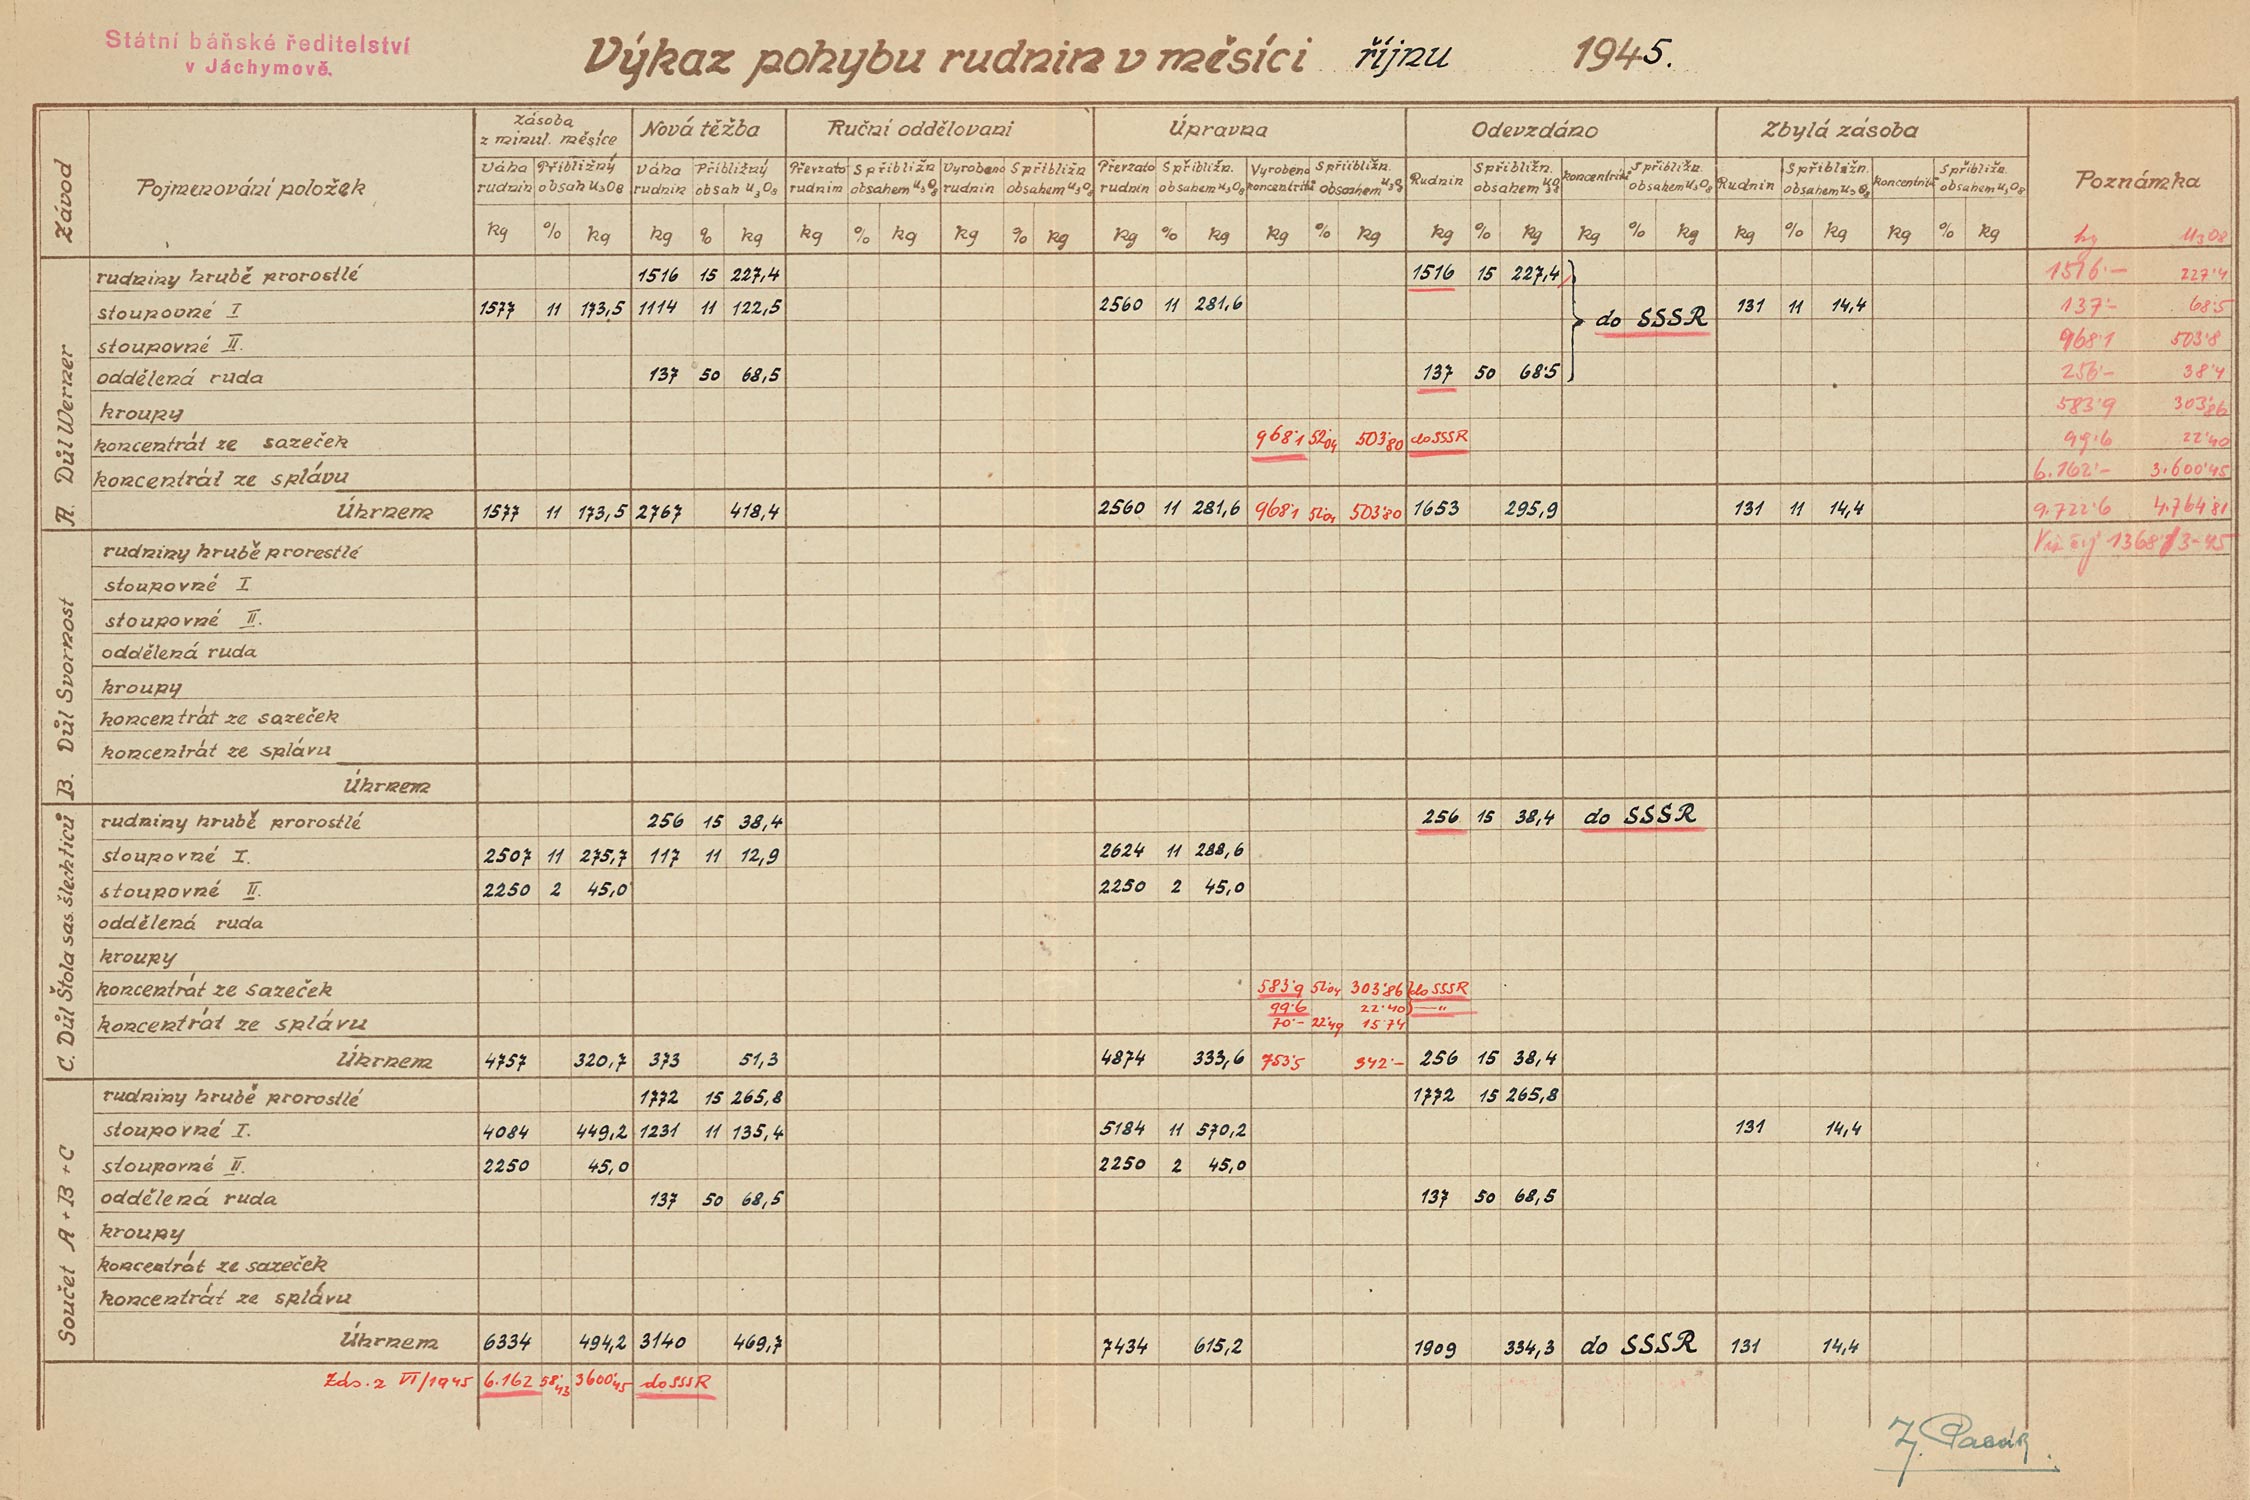 Státní báňské ředitelství
v Jáchymově.
Výkaz pohybu rudnin v měsíci říjnu 1945.
Závod
Pojmenování položek
Zásoba z minul. měsíce
Nová těžba
Ruční oddělovani
Úpravna
Odevzdáno
Zbylá zásoba
Poznámka
Váha rudnin Přibližný obsah U3O8 Váha rudnin Přibližný obsah U3O8 Převzato rudnim S přibližn. obsahem U3O8 Vyrobeno rudnin S přibližn. obsahem U3O8 Převzato rudnin S přibližn. obsahem U3O8 Vyrobeno koncentrátů S přibližn. obsahem U3O8 Rudnin S přibližn. obsahem U3O8 koncentrátů S přibližn. obsahem U3O8 Rudnin S přibližn. obsahem U3O8 koncentrátů S přibližn. obsahem U3O8
kg % kg kg % kg kg % kg kg % kg kg % kg kg % kg kg % kg kg % kg kg % kg kg % kg kg U3O8
A. Důl Werner
rudniny hrubě prorostlé 1516 15 227,4 1516 15 227,4 1516·— 227·4
stoupovné I 1577 11 173,5 1114 11 122,5 2560 11 281,6 do SSSR 131 11 14,4 137·- 68·5
stoupovné II. 968·1 503·8
oddělená ruda 137 50 68,5 137 50 68·5 256·- 38·4
kroupy 583·9 303·86
koncentrát ze sazeček 968·1 52·04 503·80 do SSSR 99·6 22·40
koncentrát ze splávu 6.162·- 3.600·45
Úhrnem 1577 11 173,5 2767 418,4 2560 11 281,6 968·1 52·04 503·80 1653 295,9 131 11 14,4 9.722·6 4.764·81
B. Důl Svornost
rudniny hrubě prorestlé
stoupovné I
stoupovné II.
oddělená ruda
kroupy
koncentrát ze sazeček
koncentrát ze splávu
Úhrnem
C. Důl Štola sas. šlechticů
rudniny hrubě prorostlé 256 15 38,4 256 15 38,4 do SSSR
stoupovné I. 2507 11 275,7 117 11 12,9 2624 11 288,6
stoupovné II. 2250 2 45,0 2250 2 45,0
oddělená ruda
kroupy
koncentrát ze sazeček 583·9 52·04 303·86 do SSSR
99·6 22·40 —"—
koncentrát ze splávu 70·- 22·49 15·74
Úhrnem 4757 320,7 373 51,3 4874 333,6 753·5 342·- 256 15 38,4
Součet A + B + C
rudniny hrubě prorostlé 1772 15 265,8 1772 15 265,8
stoupovné I. 4084 449,2 1231 11 135,4 5184 11 570,2 131 14,4
stoupovné II. 2250 45,0 2250 2 45,0
oddělená ruda 137 50 68,5 137 50 68,5
kroupy
koncentrát ze sazeček
koncentrát ze splávu
Úhrnem 6334 494,2 3140 469,7 7434 615,2 1909 334,3 do SSSR 131 14,4
Zás. z VI/1945 6.162 58·43 3600·45 do SSSR